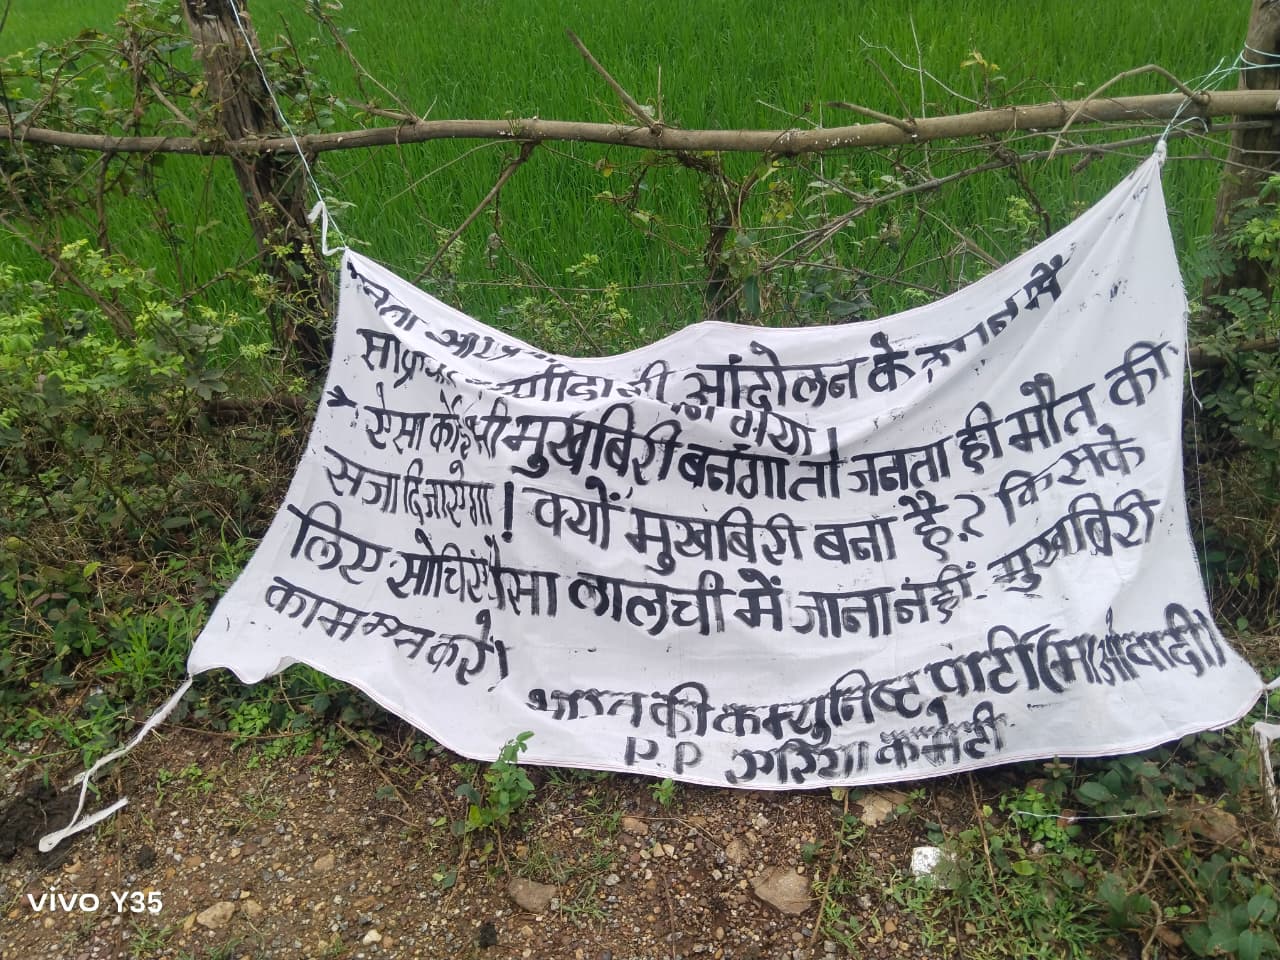 जनता
आंदोलन के में
गया।
ऐसा कोई भी मुखबिरी बनेगा तो जनता ही मौत की
सजा दिजाएगा! क्यों मुखबिरी बना है? किसके
लिए पैसा लालची में जाना नहीं. मुखबिरी
का मम्त करे।
भारत की कम्युनिष्ट पार्टी (माओवादी)
P.P एरिया कमेटी
vivo Y35